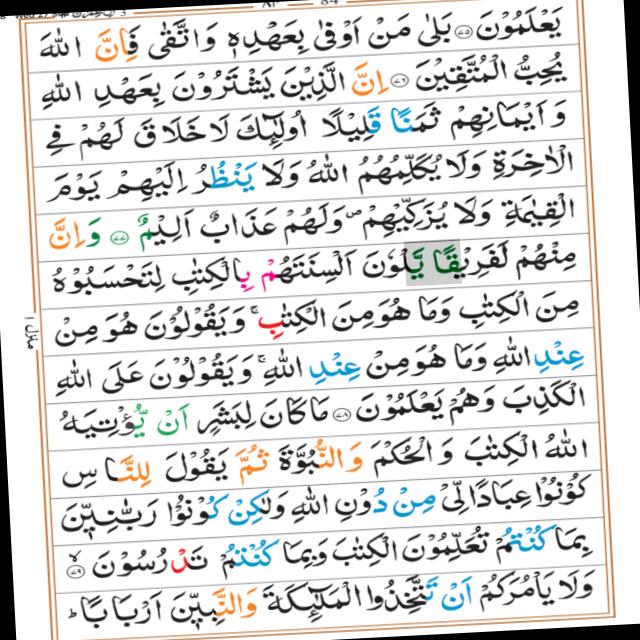 يَعْلَمُوْنَ ﴿٧٥﴾ بَلٰى مَنْ اَوْفٰى بِعَهْدِهٖ وَاتَّقٰى فَاِنَّ اللّٰهَ
يُحِبُّ الْمُتَّقِيْنَ ﴿٧٦﴾ اِنَّ الَّذِيْنَ يَشْتَرُوْنَ بِعَهْدِ اللّٰهِ
وَاَيْمَانِهِمْ ثَمَنًا قَلِيْلًا اُولٰٓئِكَ لَا خَلَاقَ لَهُمْ فِى
الْاٰخِرَةِ وَلَا يُكَلِّمُهُمُ اللّٰهُ وَلَا يَنْظُرُ اِلَيْهِمْ يَوْمَ
الْقِيٰمَةِ وَلَا يُزَكِّيْهِمْ ۖ وَلَهُمْ عَذَابٌ اَلِيْمٌ ﴿٧٧﴾ وَاِنَّ
مِنْهُمْ لَفَرِيْقًا يَّلْوٗنَ اَلْسِنَتَهُمْ بِالْكِتٰبِ لِتَحْسَبُوْهُ
مِنَ الْكِتٰبِ وَمَا هُوَ مِنَ الْكِتٰبِ ۚ وَيَقُوْلُوْنَ هُوَ مِنْ
عِنْدِ اللّٰهِ وَمَا هُوَ مِنْ عِنْدِ اللّٰهِ ۚ وَيَقُوْلُوْنَ عَلَى اللّٰهِ
الْكَذِبَ وَهُمْ يَعْلَمُوْنَ ﴿٧٨﴾ مَا كَانَ لِبَشَرٍ اَنْ يُّؤْتِيَهُ
اللّٰهُ الْكِتٰبَ وَالْحُكْمَ وَالنُّبُوَّةَ ثُمَّ يَقُوْلَ لِلنَّاسِ
كُوْنُوْا عِبَادًا لِّىْ مِنْ دُوْنِ اللّٰهِ وَلٰكِنْ كُوْنُوْا رَبّٰنِيّٖنَ
بِمَا كُنْتُمْ تُعَلِّمُوْنَ الْكِتٰبَ وَبِمَا كُنْتُمْ تَدْرُسُوْنَ ۙ﴿٧٩﴾
وَلَا يَاْمُرَكُمْ اَنْ تَتَّخِذُوا الْمَلٰٓئِكَةَ وَالنَّبِيّٖنَ اَرْبَابًا ؕ
منزل ١